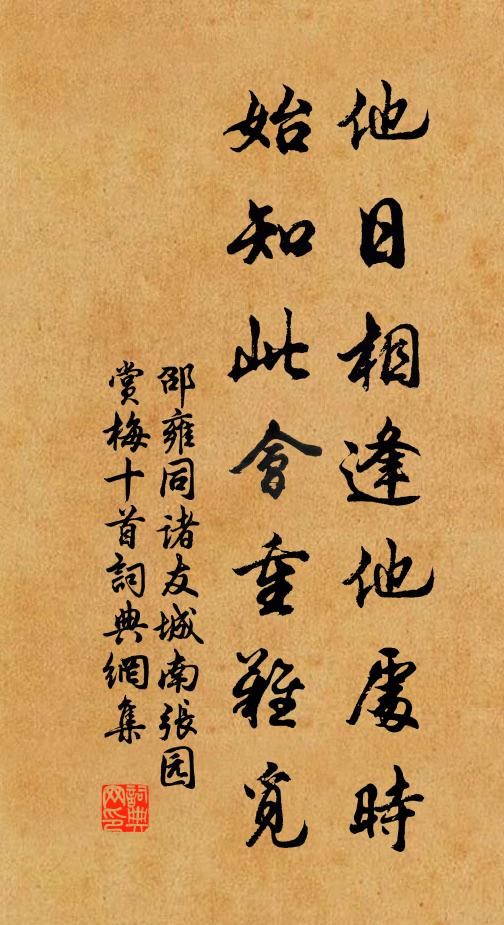 他日相逢他處時
始知此會重難覓
邵雍同诸友城南張园
賞梅十首詞典網集
詞典
网印